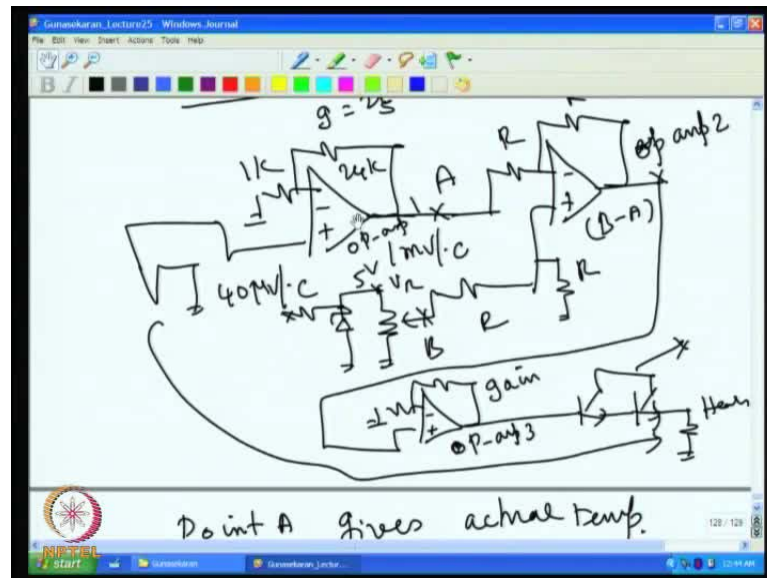 Gunasekaran_Lecture25 - Windows Journal
File Edit View Insert Actions Tools Help
B I
g = 25
1K
24K
-
+
op-amp 1
A
1mV/°C
40µV/°C
5V
VR
B
R
R
R
-
+
op amp 2
(B-A)
gain
-
+
op-amp 3
Point A gives actual temp.
128 / 128
NPTEL
start
Gunasekaran
Gunasekaran_Lectur...
12:44 AM